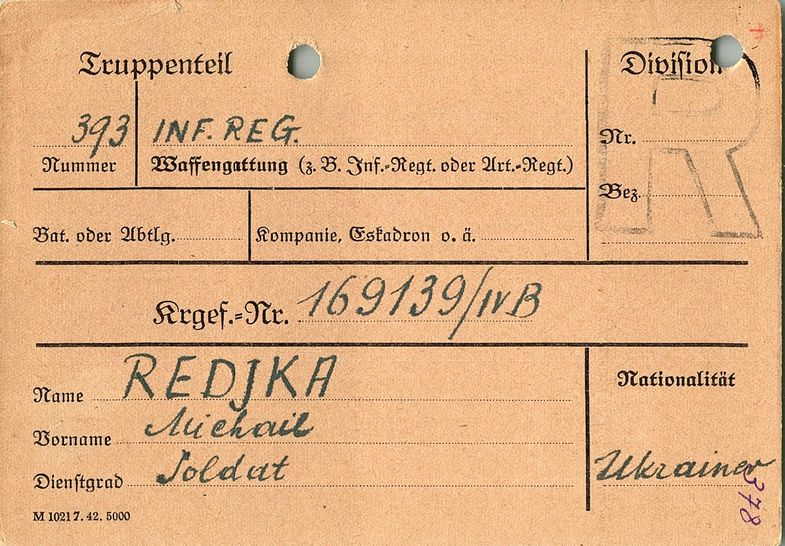 Truppenteil
Division
R
393 INF. REG.
Nummer Waffengattung (z. B. Inf.-Regt. oder Art.-Regt.)
Nr.
Bez.
Bat. oder Abtlg. Kompanie, Eskadron o. ä.
Krgef.-Nr. 169139/IVB
Name REDJKA
Vorname Michail
Dienstgrad Soldat
Nationalität
Ukrainer
378
M 1021 7. 42. 5000